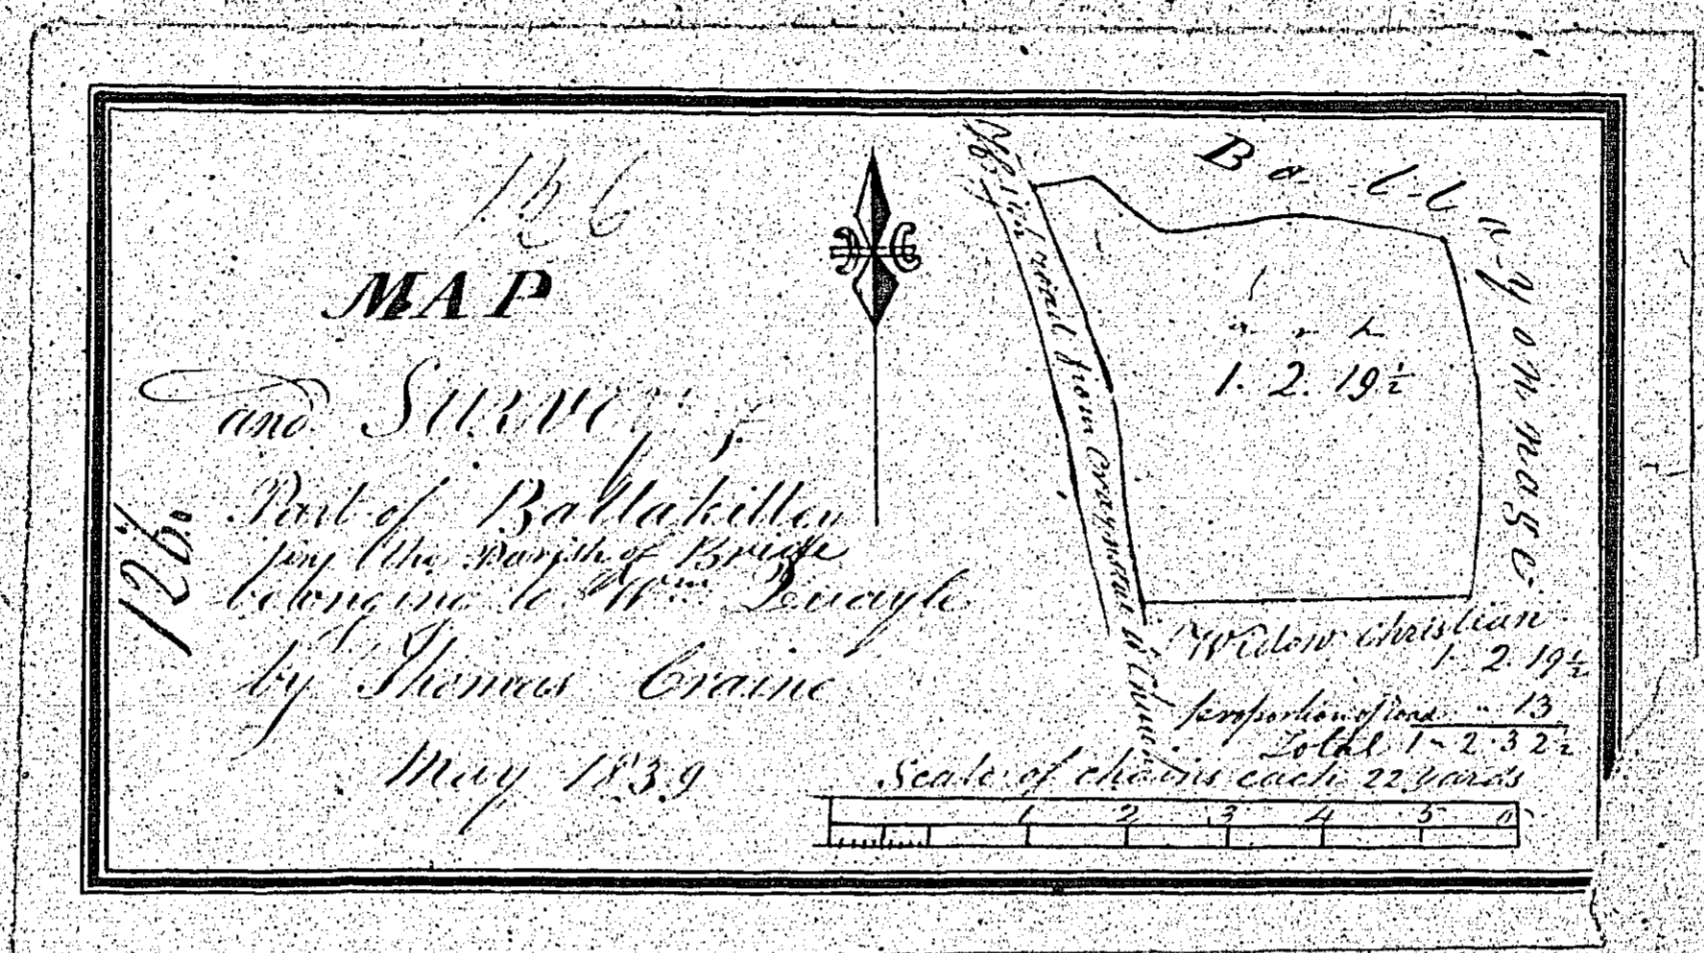 126
MAP
and Survey of
Part of Ballakilley
in the Parish of Bride
belonging to Wm Quayle
by Thomas Craine
May 1839
126
Ballayonnage
High road from Cragmear to Church
a r p
1. 2. 19½
Widow Christian
1 - 2. 19½
proportion of road " 13
Total 1 - 2. 32½
Scale of chains each 22 yards
1 2 3 4 5 6